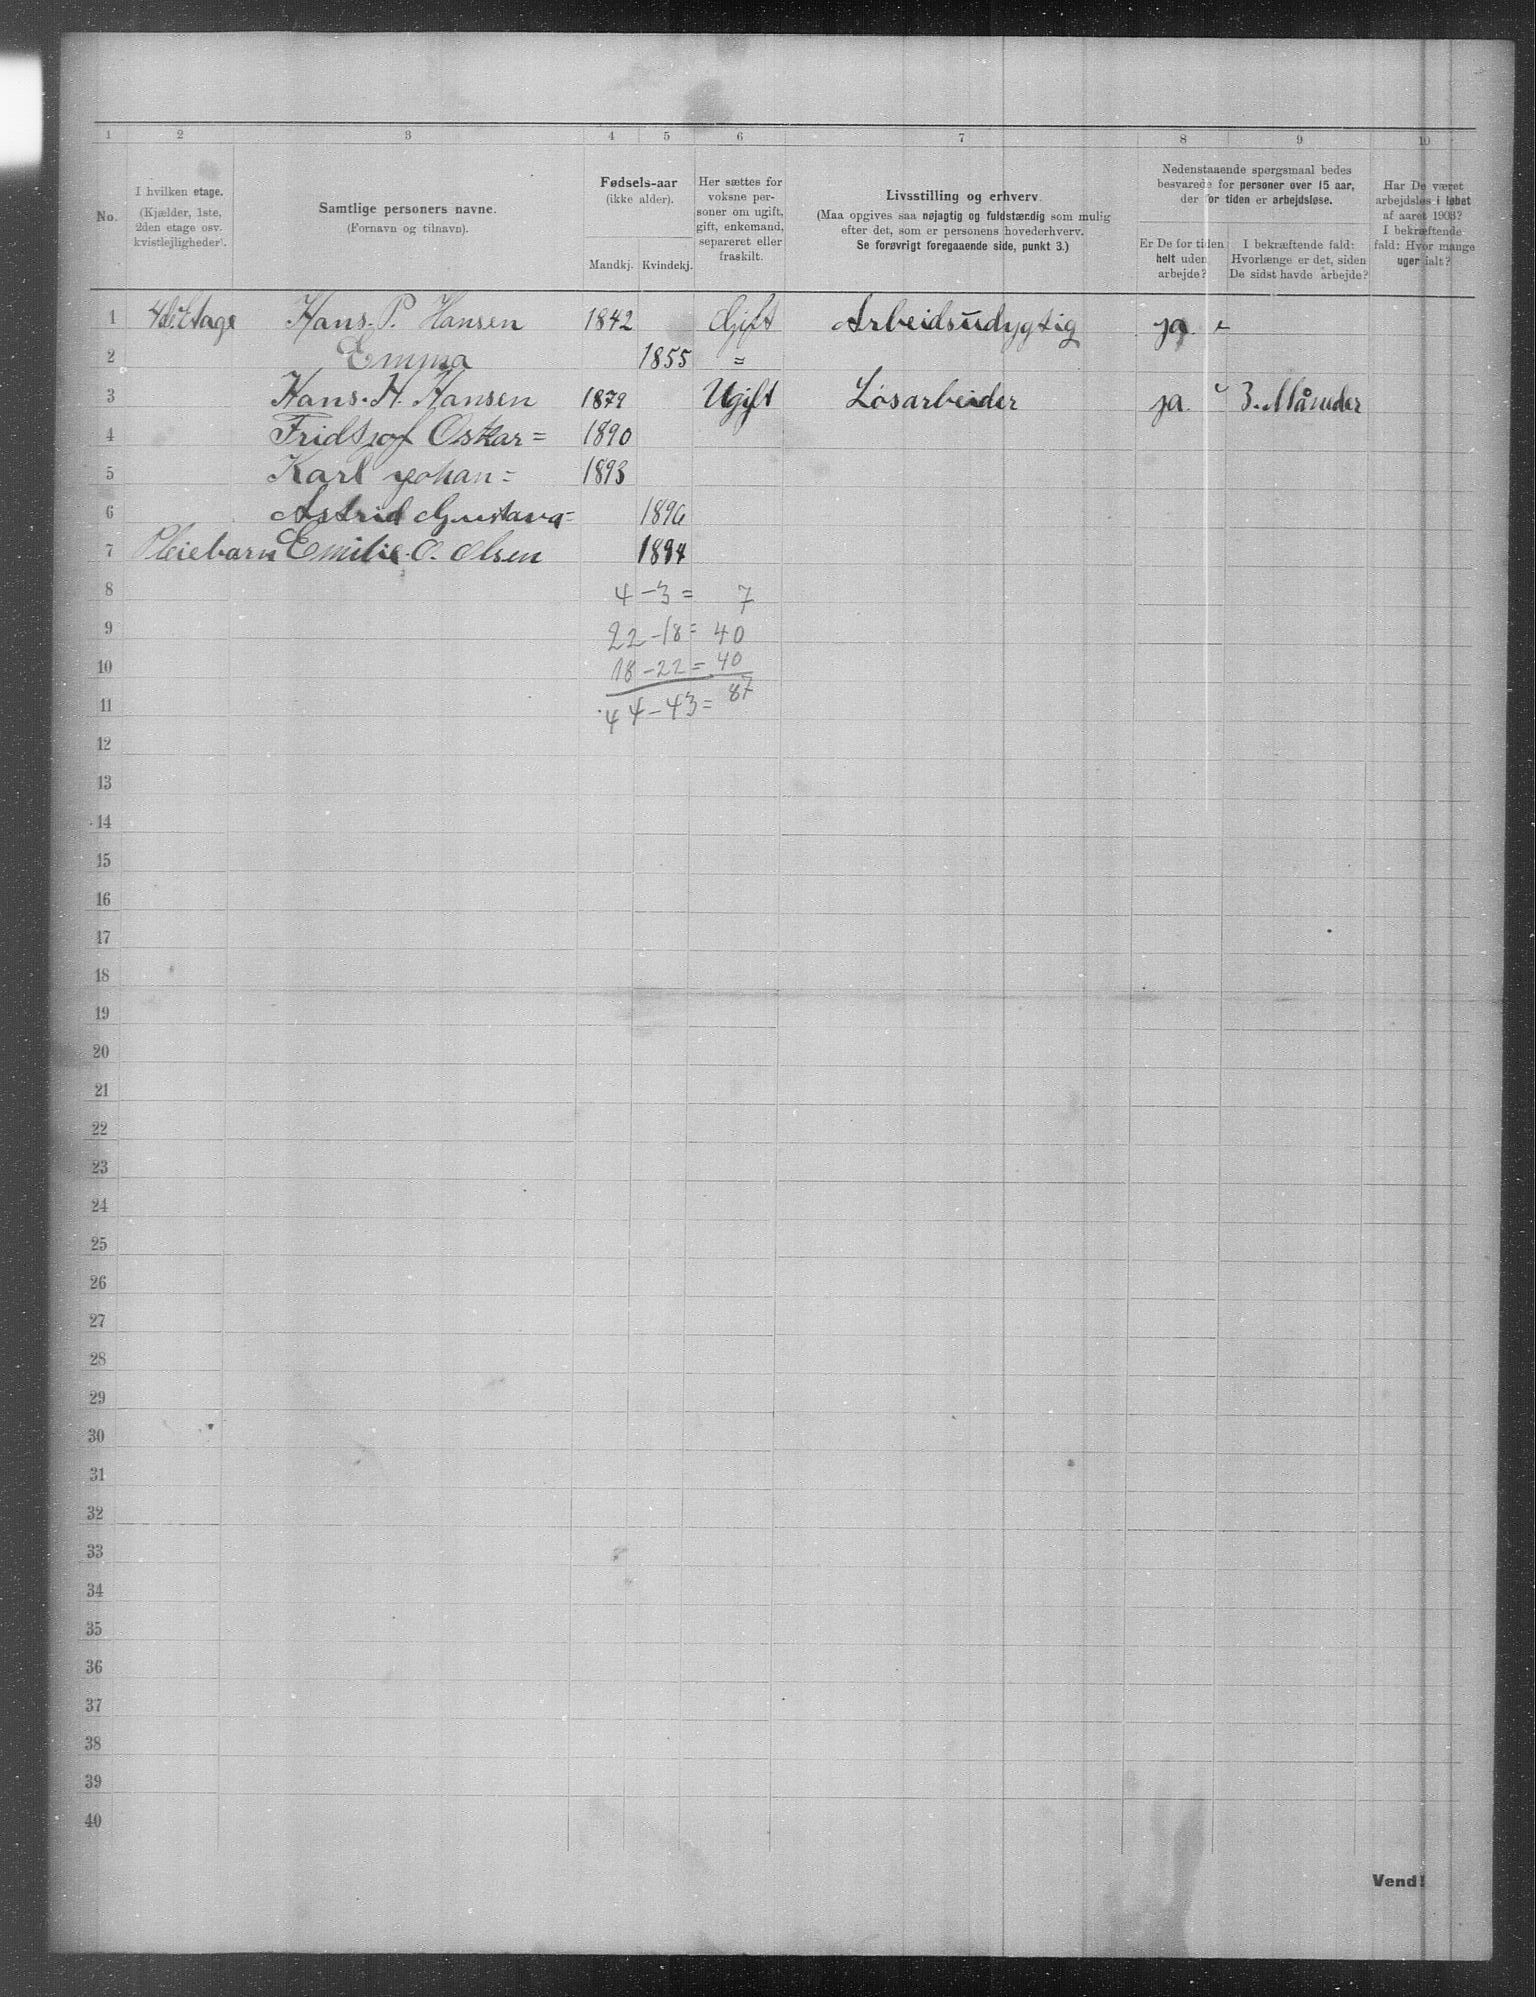 1 2 3 4 5 6 7 8 9 10
No.
I hvilken etage.
(Kjælder, 1ste,
2den etage osv.
kvistlejligheder).
Samtlige personers navne.
(Fornavn og tilnavn).
Fødsels-aar
(ikke alder).
Mandkj. Kvindekj.
Her sættes for
voksne per-
soner om ugift,
gift, enkemand,
separeret eller
fraskilt.
Livsstilling og erhverv.
(Maa opgives saa nøjagtig og fuldstændig som mulig
efter det, som er personens hovederhverv.
Se forøvrigt foregaaende side, punkt 3.)
Nedenstaaende spørgsmaal bedes
besvarede for personer over 15 aar,
der for tiden er arbejdsløse.
Er De for tiden
helt uden
arbejde?
I bekræftende fald:
Hvorlænge er det, siden
De sidst havde arbejde?
Har De været
arbejdsløs i løbet
af aaret 1903?
I bekræftende
fald: Hvor mange
uger ialt?
1 4de Etage Hans. P. Hansen 1842 Gift Arbeidsudygtig ja
2 Emma 1855 =
3 Hans. H. Hansen 1879 Ugift Løsarbeider ja 3. Måneder
4 Fridtjof Oskar = 1890
5 Karl Johan = 1893
6 Astrid Gustava = 1896
7 Pleiebarn Emilie. O. Olsen 1894
8 4 - 3 = 7
9 22 - 18 = 40
10 18 - 22 = 40
11 44 - 43 = 87
12
13
14
15
16
17
18
19
20
21
22
23
24
25
26
27
28
29
30
31
32
33
34
35
36
37
38
39
40
Vend!